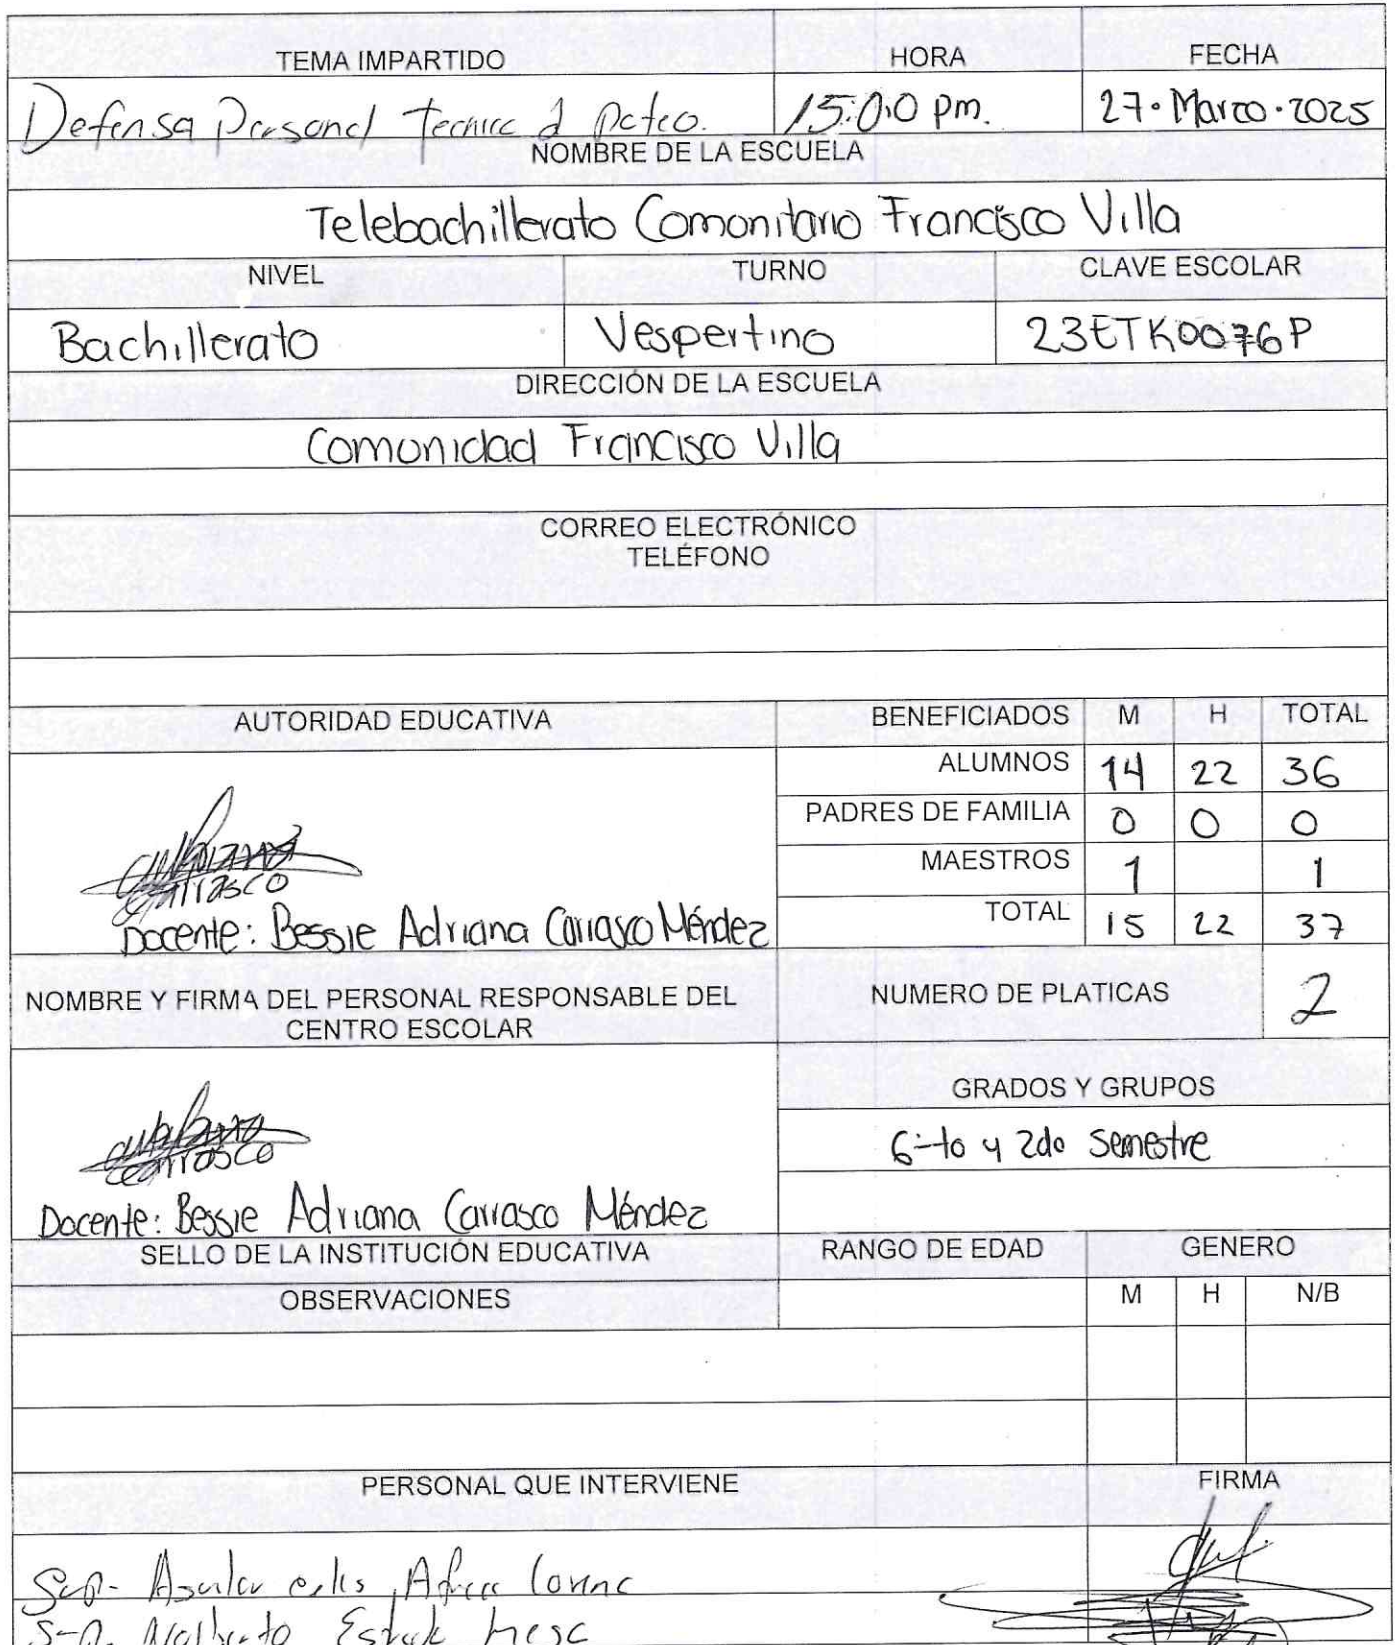 TEMA IMPARTIDO HORA FECHA
Defensa Personal Tecnica d pateo. 15:00 pm. 27·Marzo·2025
NOMBRE DE LA ESCUELA
Telebachillerato Comonitario Francisco Villa
NIVEL TURNO CLAVE ESCOLAR
Bachillerato Vespertino 23ETK0076P
DIRECCIÓN DE LA ESCUELA
Comunidad Francisco Villa
CORREO ELECTRÓNICO
TELÉFONO
AUTORIDAD EDUCATIVA BENEFICIADOS M H TOTAL
ALUMNOS 14 22 36
PADRES DE FAMILIA 0 0 0
MAESTROS 1 1
Carrasco
Docente: Bessie Adriana Carrasco Méndez TOTAL 15 22 37
NOMBRE Y FIRMA DEL PERSONAL RESPONSABLE DEL
CENTRO ESCOLAR
NUMERO DE PLATICAS 2
GRADOS Y GRUPOS
6-to y 2do semestre
Carrasco
Docente: Bessie Adriana Carrasco Méndez
SELLO DE LA INSTITUCIÓN EDUCATIVA RANGO DE EDAD GENERO
OBSERVACIONES M H N/B
PERSONAL QUE INTERVIENE FIRMA